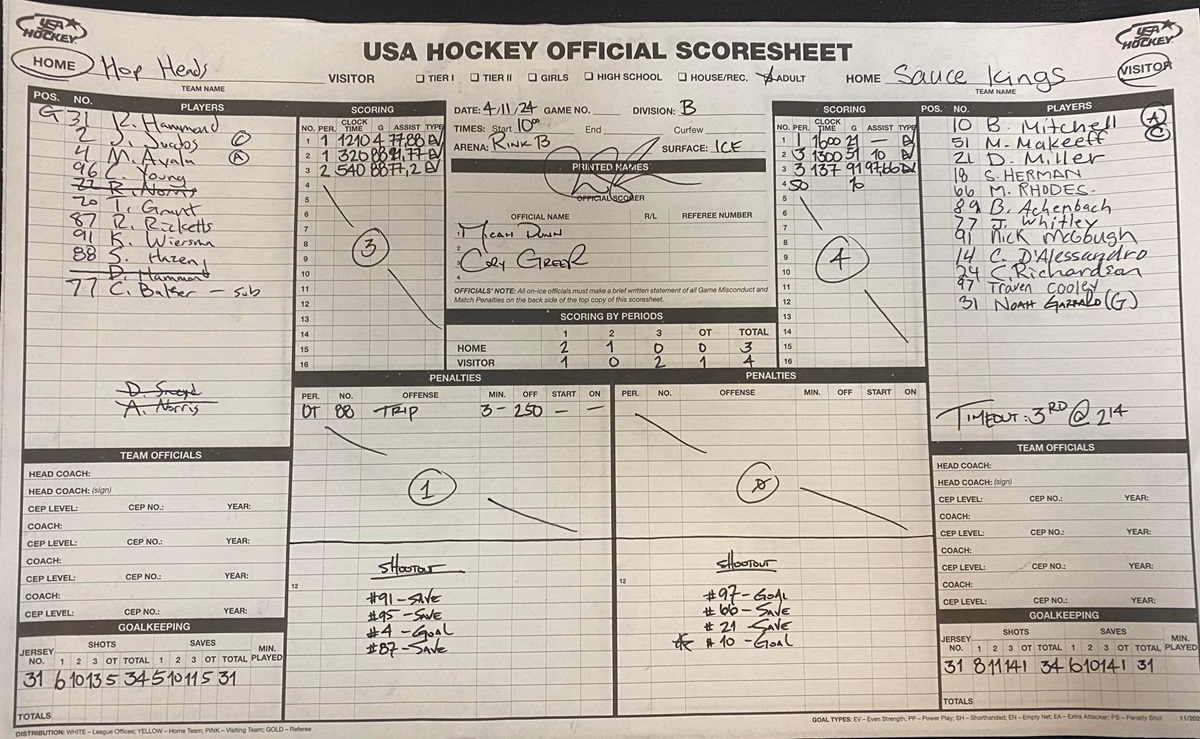 USA HOCKEY
USA HOCKEY
USA HOCKEY OFFICIAL SCORESHEET
HOME Hop Heads VISITOR
TEAM NAME
TIER I TIER II GIRLS HIGH SCHOOL HOUSE/REC. ADULT
HOME Sauce Kings VISITOR
TEAM NAME
POS. NO. PLAYERS
G 31 K. Hammond
2 J. Jacobs C
4 M. Ayala A
96 C. Young
22 R. Norris
20 T. Grant
87 R. Ricketts
91 K. Wiersma
88 S. Hazen
D. Hammond
77 C. Balser - sub
A. Norris
SCORING
NO. PER. CLOCK TIME G ASSIST TYPE
1 1 1210 4 77,88 EV
2 1 320 88 91,77 EV
3 2 540 88 77,2 EV
4
5
6
7
8
9
10
11
12
13
14
15
16
3
DATE: 4/11/24 GAME NO. DIVISION: B
TIMES: Start 10:00 End Curfew
ARENA: RINK B SURFACE: ICE
PRINTED NAMES
OFFICIAL SCORER
OFFICIAL NAME R/L REFEREE NUMBER
1 MICAH DUNN
2
3 CORY GREER
4
OFFICIALS' NOTE: All on-ice officials must make a brief written statement of all Game Misconduct and
Match Penalties on the back side of the top copy of this scoresheet.
SCORING BY PERIODS
1 2 3 OT TOTAL
HOME 2 1 0 0 3
VISITOR 1 0 2 1 4
SCORING
NO. PER. CLOCK TIME G ASSIST TYPE
1 1 1600 21 — EV
2 3 1300 51 10 EV
3 3 137 91 97,66 EV
4 SO 10
5
6
7
8
9
10
11
12
13
14
15
16
4
POS. NO. PLAYERS
10 B. Mitchell A
51 M. Makeeff C
21 D. Miller
18 S. HERMAN
66 M. RHODES
89 B. Achenbach
77 J. Whitley
91 Nick McGough
14 C. D'Alessandro
24 C. Richardson
97 Traven Cooley
31 NOAH (G)
TIMEOUT: 3RD @ 214
PENALTIES
PER. NO. OFFENSE MIN. OFF START ON
OT 88 TRIP 3 - 250 — —
1
12
SHOOTOUT
#91 - SAVE
#95 - SAVE
#4 - GOAL
#87 - SAVE
PENALTIES
PER. NO. OFFENSE MIN. OFF START ON
0
12
SHOOTOUT
#97 - GOAL
#66 - SAVE
#21 - SAVE
#10 - GOAL
TEAM OFFICIALS
HEAD COACH:
HEAD COACH: (sign)
CEP LEVEL: CEP NO.: YEAR:
COACH:
CEP LEVEL: CEP NO.: YEAR:
COACH:
CEP LEVEL: CEP NO.: YEAR:
COACH:
CEP LEVEL: CEP NO.: YEAR:
GOALKEEPING
JERSEY NO. SHOTS SAVES MIN. PLAYED
1 2 3 OT TOTAL 1 2 3 OT TOTAL
31 6 10 13 5 34 5 10 11 5 31
TOTALS
TEAM OFFICIALS
HEAD COACH:
HEAD COACH: (sign)
CEP LEVEL: CEP NO.: YEAR:
COACH:
CEP LEVEL: CEP NO.: YEAR:
COACH:
CEP LEVEL: CEP NO.: YEAR:
COACH:
CEP LEVEL: CEP NO.: YEAR:
GOALKEEPING
JERSEY NO. SHOTS SAVES MIN. PLAYED
1 2 3 OT TOTAL 1 2 3 OT TOTAL
31 8 11 14 1 34 6 10 14 1 31
TOTALS
DISTRIBUTION: WHITE – League Offices; YELLOW – Home Team; PINK – Visiting Team; GOLD – Referee
GOAL TYPES: EV – Even Strength; PP – Power Play; SH – Shorthanded; EN – Empty Net; EA – Extra Attacker; PS – Penalty Shot